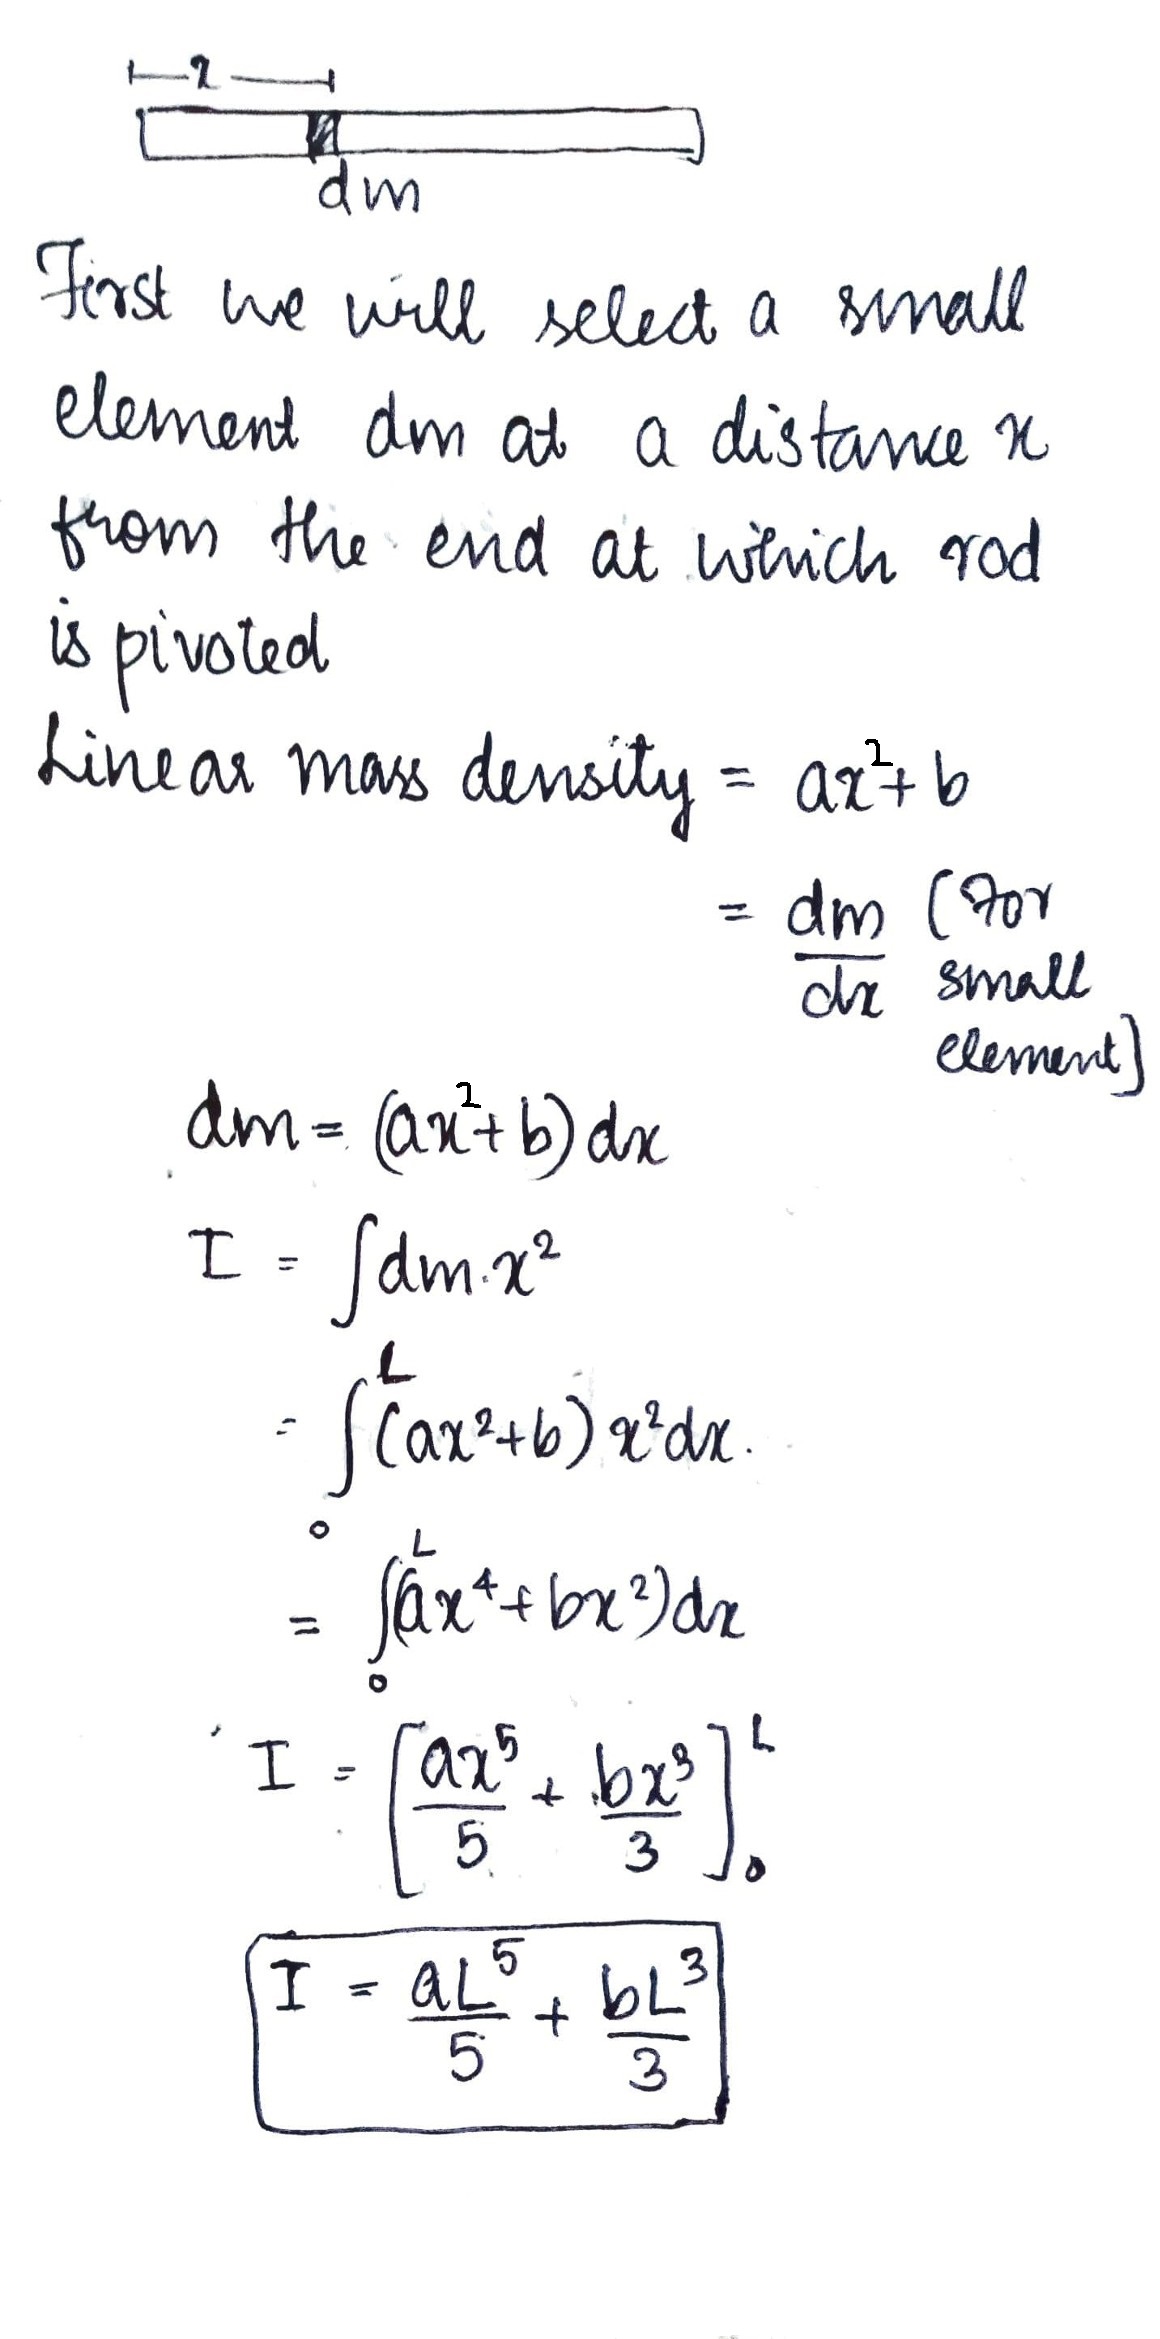 x
dm
First we will select a small
element dm at a distance x
from the end at which rod
is pivoted
Linear mass density = ax²+ b
= dm/dx (For
small
element]
dm = (ax²+ b) dx
I = ∫dm.x²
= ∫₀ᴸ(ax²+b) x²dx.
= ∫₀ᴸ(ax⁴+bx²)dx
I = [ax⁵/5 + bx³/3]₀ᴸ
I = aL⁵/5 + bL³/3